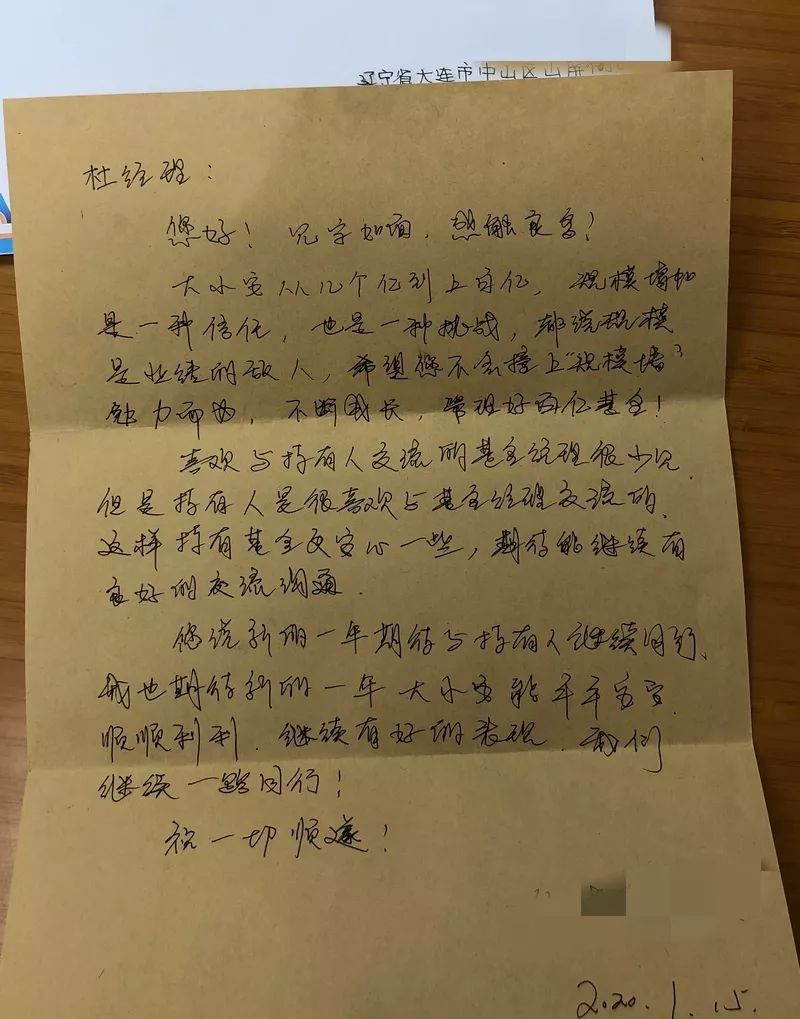 辽宁省大连市中山区山屏街
杜经理:
您好! 见字如面,感触良多!
大小安从几个亿到上百亿,规模增加
是一种信任,也是一种挑战,都说规模
是业绩的敌人,希望您不会撞上“规模墙”
勉力而为,不断成长,管理好百亿基金!
喜欢与持有人交流的基金经理很少见
但是持有人是很喜欢与基金经理交流的.
这样持有基金更安心一些,期待能继续有
良好的交流沟通.
您说新的一年期待与持有人继续同行、
我也期待新的一年 大小安能平平安安.
顺顺利利.继续有好的表现.我们
继续一路同行!
祝一切顺遂!
2020.1.15